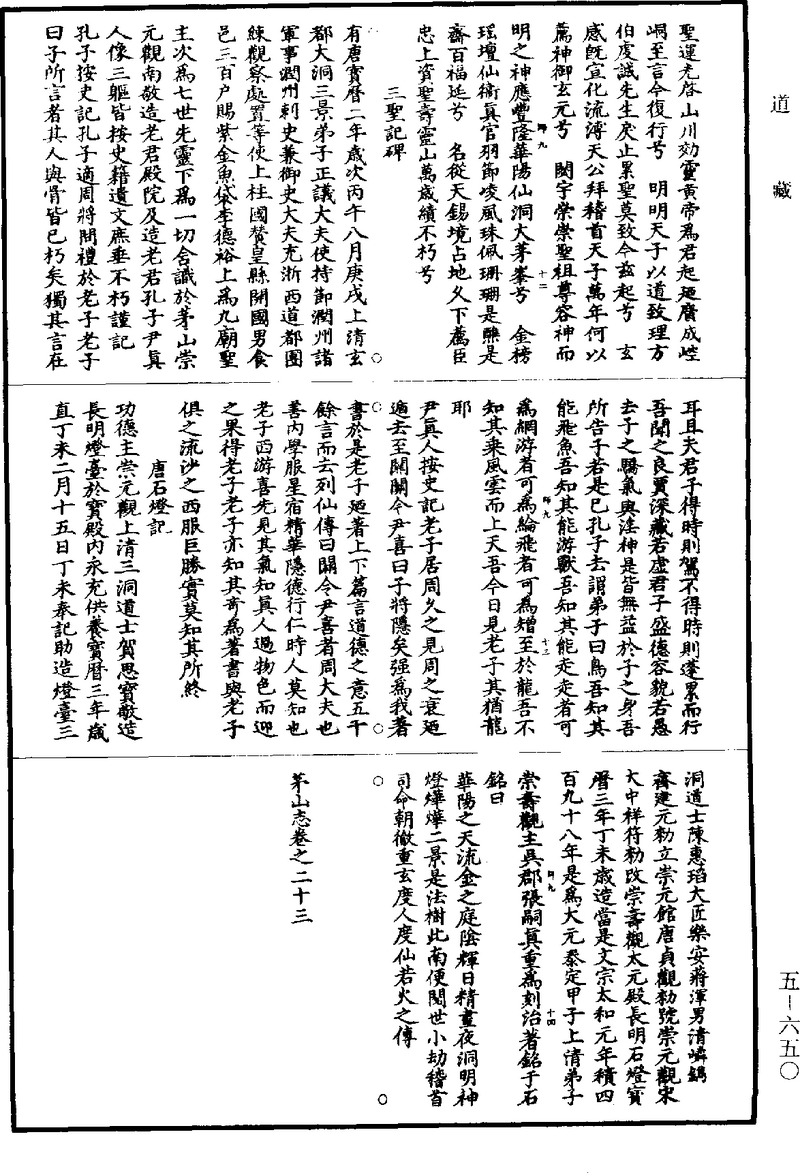 道藏
聖運光啓山川効靈黃帝爲君起廻膺成崆
峒至言今復行兮　明明天子以道致理方
伯虔誠先生戾止累聖莫致今茲起兮　玄
感旣宣化流溥天公拜稽首天子萬年何以
薦神御玄元兮　閟宇崇崇聖祖尊容神而
明之神應豐隆華陽仙洞大茅峯兮　金榜
瑶壇仙衛眞官羽節凌風珠佩珊珊是醮是
齋百福延兮　名從天錫境占地久下薦臣
忠上資聖壽靈山萬歲績不朽兮
三聖記碑
有唐寶曆二年歲次丙午八月庚戌上清玄
都大洞三景弟子正議大夫使持節潤州諸
軍事潤州刺史兼御史大夫充浙西道都團
練觀察處置等使上柱國贊皇縣開國男食
邑三百户賜紫金魚袋李德裕上爲九廟聖
主次爲七世先靈下爲一切含識於茅山崇
元觀南敬造老君殿院及造老君孔子尹眞
人像三軀皆按史籍遺文庶垂不朽謹記
孔子按史記孔子適周將問禮於老子老子
曰子所言者其人與骨皆已朽矣獨其言在
耳且夫君子得時則駕不得時則蓬累而行
吾聞之良賈深藏若虛君子盛德容貌若愚
去子之驕氣與淫神是皆無益於子之身吾
所告子若是已孔子去謂弟子曰鳥吾知其
能飛魚吾知其能游獸吾知其能走走者可
爲網游者可爲綸飛者可爲矰至於龍吾不
知其乘風雲而上天吾今日見老子其猶龍
耶
尹眞人按史記老子居周久之見周之衰廼
遁去至關關令尹喜曰子將隱矣强爲我著
書於是老子廼著上下篇言道德之意五千
餘言而去列仙傳曰關令尹喜者周大夫也
善内學服星宿精華隱德行仁時人莫知也
老子西游喜先見其氣知眞人過物色而迎
之果得老子老子亦知其奇爲著書與老子
俱之流沙之西服巨勝實莫知其所終
唐石燈記
功德主崇元觀上清三洞道士賀思寶敬造
長明燈臺於寶殿内永充供養寶曆三年歲
直丁未二月十五日丁未奉記助造燈臺三
洞道士陳惠瑫大匠樂安蔣渾男清嶙鐫
齋建元勑立崇元館唐貞觀勑號崇元觀宋
大中祥符勑改崇壽觀太元殿長明石燈寶
曆三年丁未歲造當是文宗太和元年積四
百九十八年是爲大元泰定甲子上清弟子
崇壽觀主吳郡張嗣眞重爲刻治著銘于石
銘曰
華陽之天流金之庭陰輝日精晝夜洞明神
燈燁燁二景是法樹此南便閱世小劫稽首
司命朝徹重玄度人度仙若火之傳
茅山志卷之二十三
師九　十二
師九　十三
師九　十四
五－六五〇